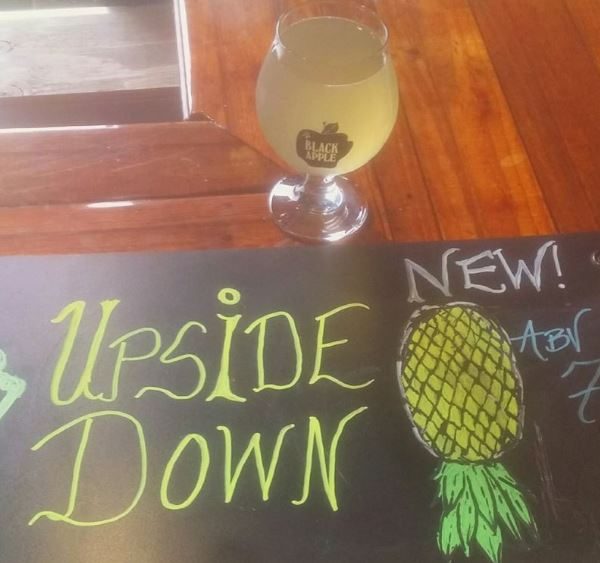 BLACK
APPLE
NEW!
UPSIDE
DOWN
ABV
7